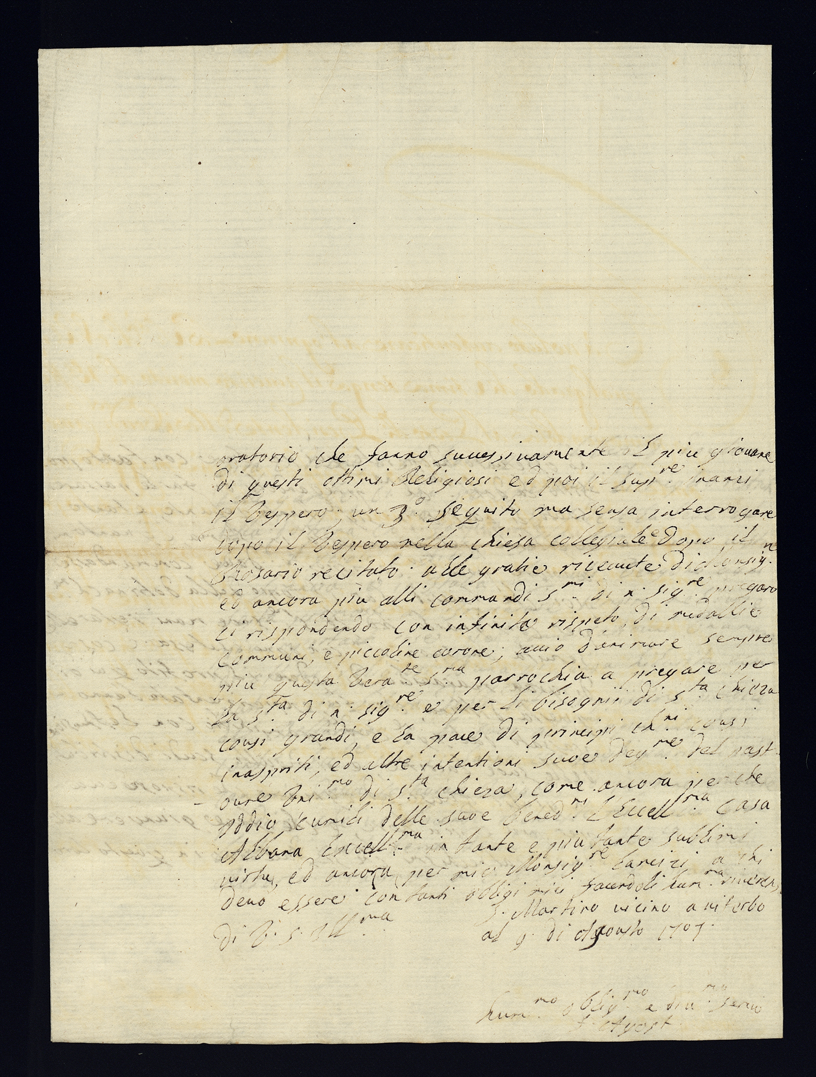 oratorio che fanno successivamente il più giovane
di questi ottimi Religiosi ed poi il sup.re inanzi
il Vespero, un 3.o seguito ma sensa interrogare
dopo il Vespero nella chiesa collegiale dopo il
Rosario recitato. alle gratie ricevute di Monsig.r
ed ancora più alli commandi s.mi di n. sig.re pregaro
li rispondendo con infinito rispeto, di medallie
communi, e piccoline corone; acciò d'animare sempre
più questa s.ma parrochia a pregare per
la s.ta di n. sig.re e per li bisogni di s.ta chieza
cousi grandi, e la pace di principi ch.ni cousi
inaspriti, ed altre intentioni suoe deg.me del past-
ore Uni.mo di s.ta chieza, come ancora perche
Iddio cumuli delle suoe bened.ni l'Eccell.ma Casa
Albana Eccell.ma in tante e più tante sublimi
virtu, ed ancora per mio Monsig.re Lancizi a chi
devo essere con tanti obligi miei facendoli hum.ma riverenza
di V. S. Ill.ma S. Martino vicino a viterbo
al 9. di Agousto 1707.
hum.mo oblig.mo e div.mo servo